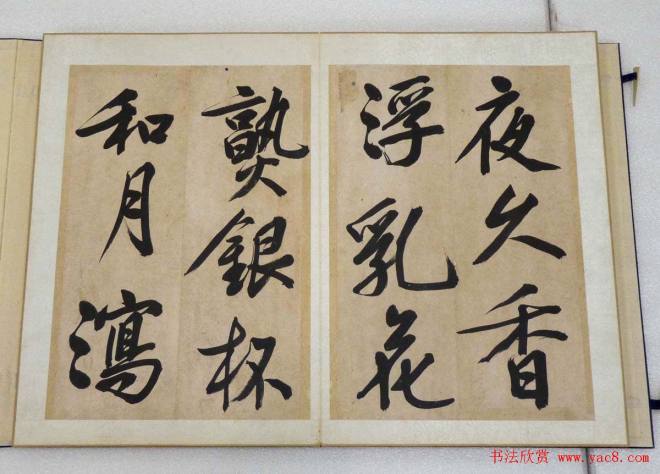 夜久香
浮乳花
熟銀杯
和月瀉
书法欣赏 www.yac8.com